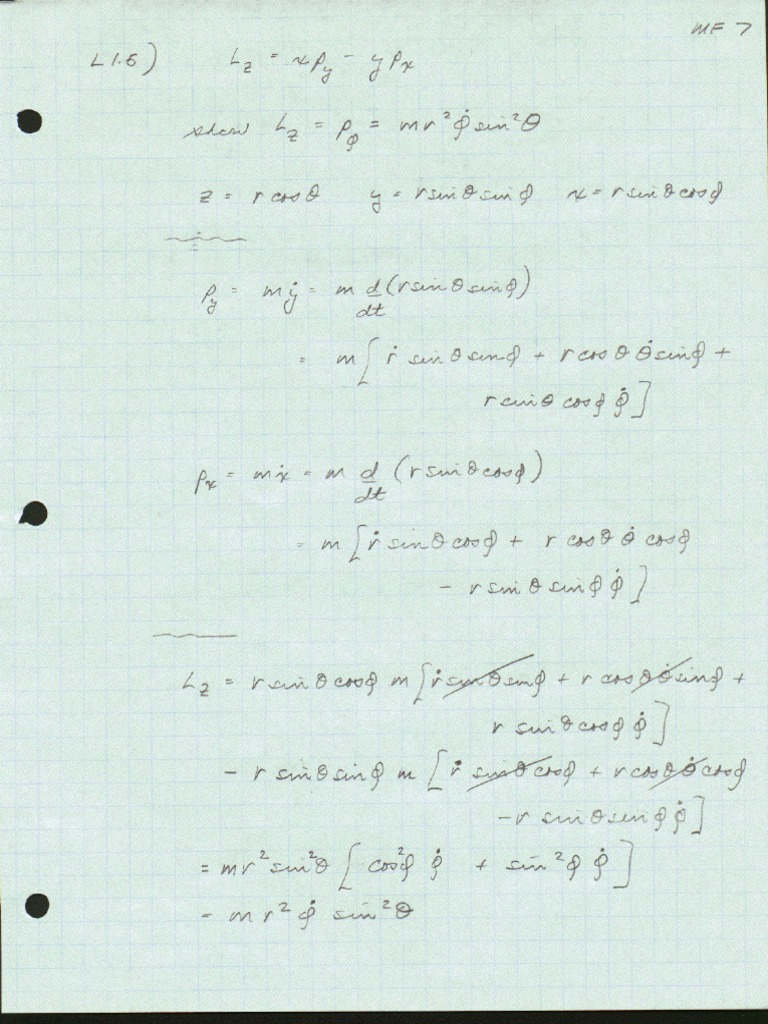 MF 7
L 1.5) L_z = x p_y - y p_x
show L_z = p_φ = m r² φ̇ sin²θ
z = r cosθ y = r sinθ sinφ x = r sinθ cosφ
p_y = m ẏ = m d/dt (r sinθ sinφ)
= m [ ṙ sinθ sinφ + r cosθ θ̇ sinφ +
r sinθ cosφ φ̇ ]
p_x = m ẋ = m d/dt (r sinθ cosφ)
= m [ ṙ sinθ cosφ + r cosθ θ̇ cosφ
- r sinθ sinφ φ̇ ]
L_z = r sinθ cosφ m [ ṙ sinθ sinφ + r cosθ θ̇ sinφ +
r sinθ cosφ φ̇ ]
- r sinθ sinφ m [ ṙ sinθ cosφ + r cosθ θ̇ cosφ
- r sinθ sinφ φ̇ ]
= m r² sin²θ [ cos²φ φ̇ + sin²φ φ̇ ]
= m r² φ̇ sin²θ